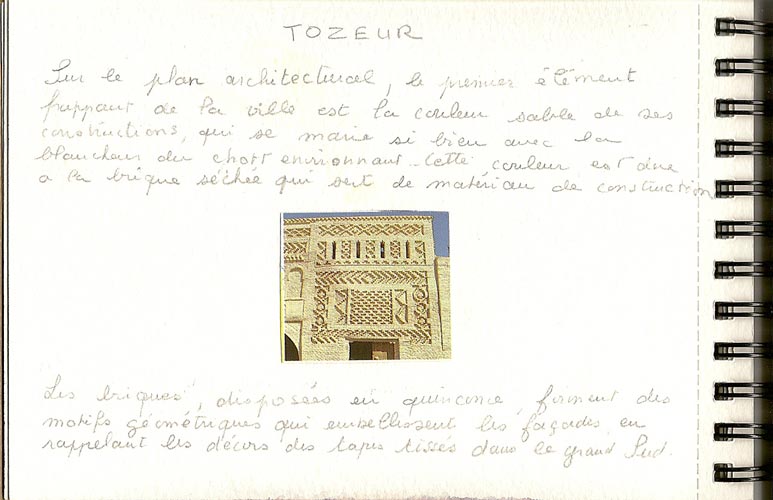 TOZEUR
Sur le plan architectural, le premier élément
frappant de la ville est la couleur sable de ses
constructions, qui se marie si bien avec la
blancheur du chott environnant. Cette couleur est due
a la brique séchée qui sert de matériau de construction
Les briques, disposées en quinconce, forment des
motifs géométriques qui embellissent les façades, en
rappelant les décors des tapis tissés dans le grand Sud.